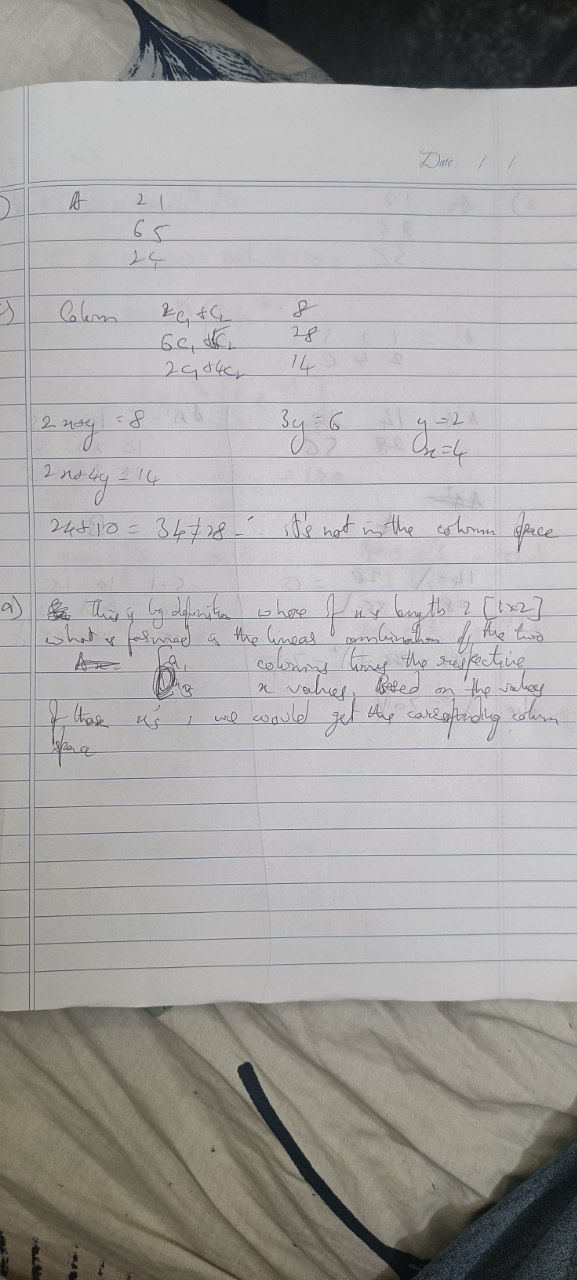 Date: / /
) A 2 1
6 5
2 4
c) Column 2c₁+c₂ 8
6c₁+5c₂ 28
2c₁+4c₂ 14
2x+y = 8 3y=6 y=2
x=4
2x+4y=14
24+10 = 34≠28 ∴ it's not in the column space
a) This is by definition where if x is length 2 [1×2]
what is formed is the linear combination of the two
columns times the respective
x values. Based on the values
of these x's, we would get the corresponding column
space